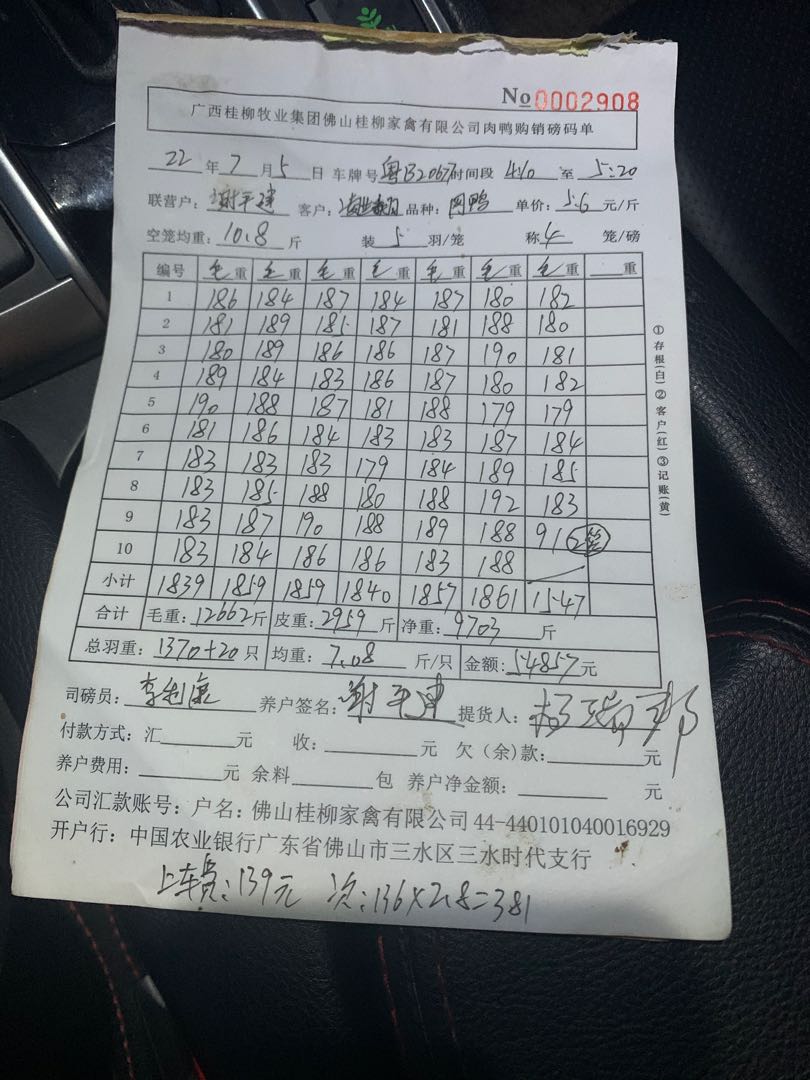 No 0002908
广西桂柳牧业集团佛山桂柳家禽有限公司肉鸭购销磅码单
22 年 7 月 5 日 车牌号 时间段 至 5:20
联营户: 谢平建 客户: 品种: 单价: 5.6 元/斤
空笼均重: 10.8 斤 装 5 羽/笼 称 4 笼/磅
编号 毛重 毛重 毛重 毛重 毛重 毛重 毛重 重
1 186 184 187 184 187 180 182
2 181 189 185 187 181 188 180
3 180 189 186 186 187 190 181
4 189 184 183 186 187 180 182
5 190 188 187 181 188 179 179
6 181 186 184 183 183 187 184
7 183 183 183 179 184 189 185
8 183 185 188 180 188 192 183
9 183 187 190 188 189 188 91 2笼
10 183 184 186 186 183 188
小计 1839 1859 1859 1840 1857 1861 1547
合计 毛重: 12662 斤 皮重: 2959 斤 净重: 9703 斤
总羽重: 1370+20 只 均重: 7.08 斤/只 金额: 54857 元
司磅员: 养户签名: 谢平建 提货人:
付款方式: 汇 元 收: 元 欠（余）款: 元
养户费用: 元 余料 包 养户净金额: 元
公司汇款账号: 户名: 佛山桂柳家禽有限公司 44-440101040016929
开户行: 中国农业银行广东省佛山市三水区三水时代支行
上车费: 139元 次: 136×2.8=381
①存根(白)②客户(红)③记账(黄)